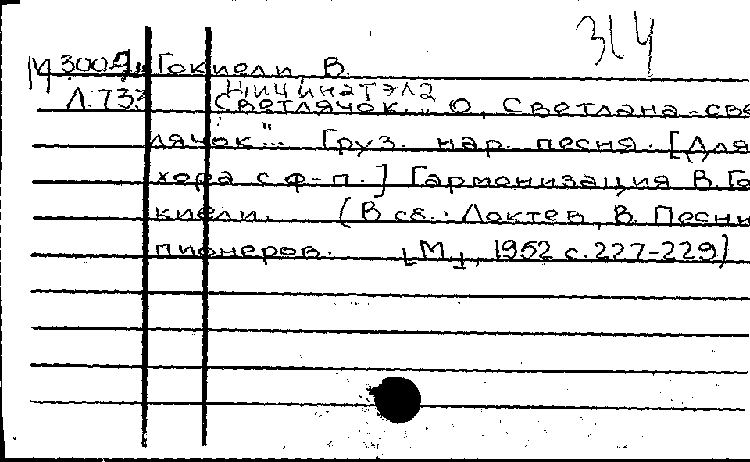 314
М 3009 Гокиели, В.
Л.733 Ницинатэла
Светлячок... "О, Светлана-све
лячок"... Груз. нар. песня. [Для
хора с ф-п.] Гармонизация В. Го
киели. (В сб.: Локтев, В. Песни
пионеров. [М.], 1952 с.227-229)